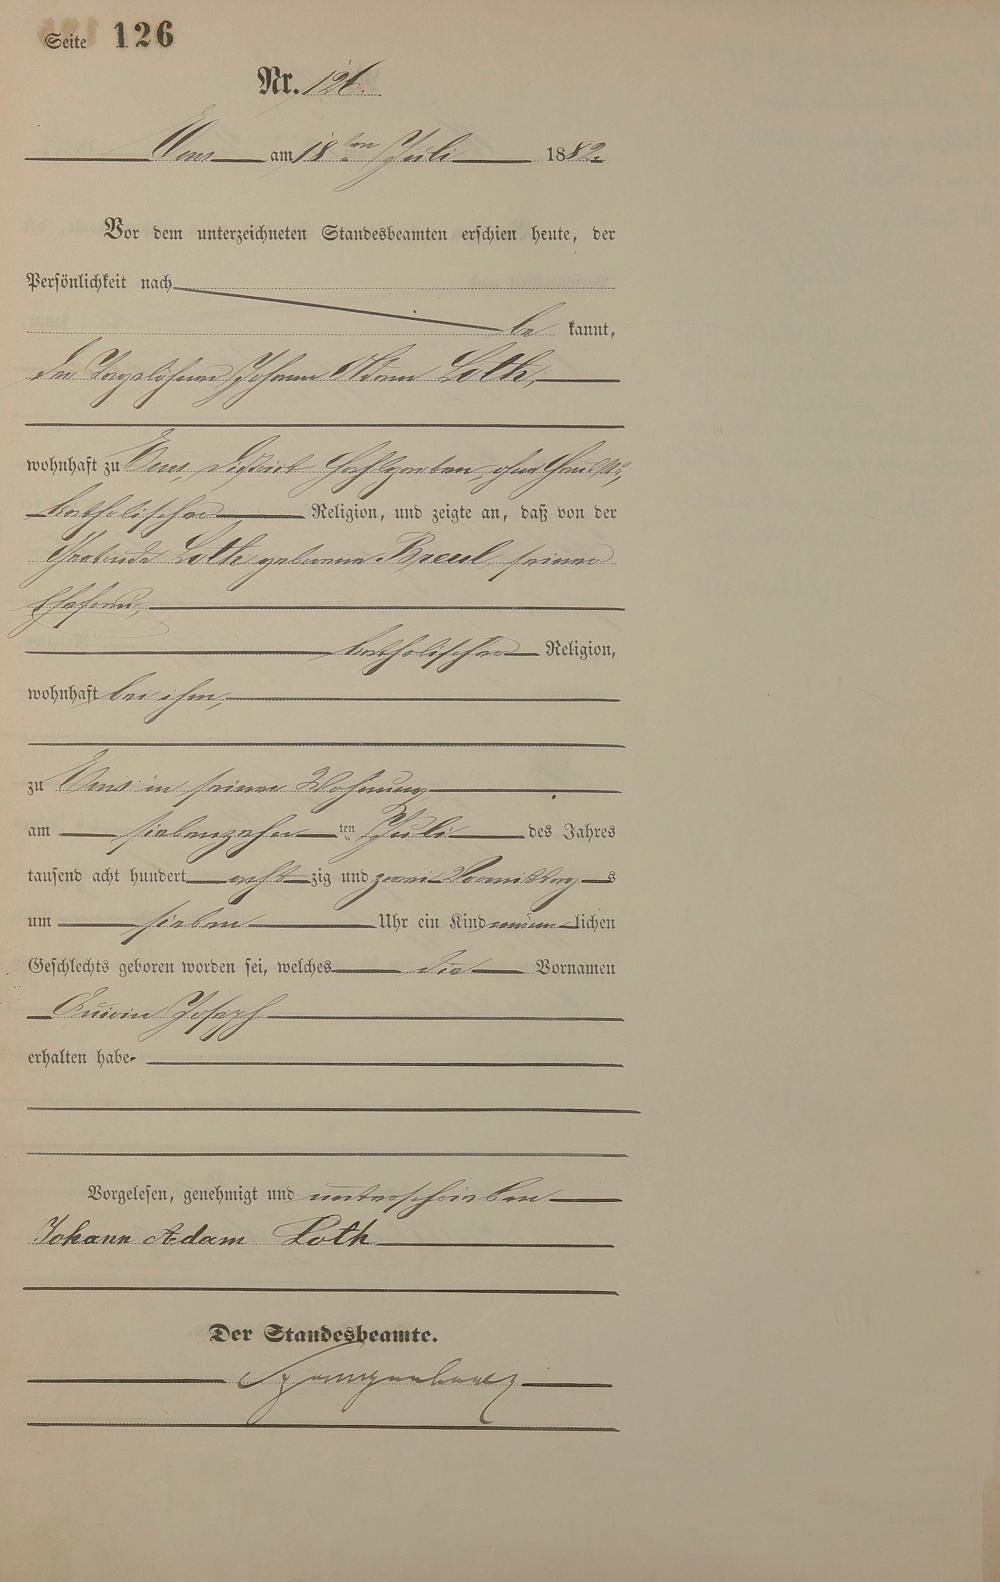 Seite 126
Nr. 126.
Ems am 18ten Juli 1882.
Vor dem unterzeichneten Standesbeamten erschien heute, der
Persönlichkeit nach
be kannt,
der Tagelöhner Johann Adam Loth,
wohnhaft zu Ems, District ohne Haus Nr.,
katholischer Religion, und zeigte an, daß von der
Loth geborene Breul, seiner
Ehefrau,
katholischer Religion,
wohnhaft bei ihm,
zu Ems in seiner Wohnung
am siebenzehn ten Juli des Jahres
tausend acht hundert acht zig und zwei Vormittag s
um sieben Uhr ein Kind männ lichen
Geschlechts geboren worden sei, welches die Vornamen
Joseph
erhalten habe
Vorgelesen, genehmigt und unterschrieben
Johann Adam Loth
Der Standesbeamte.